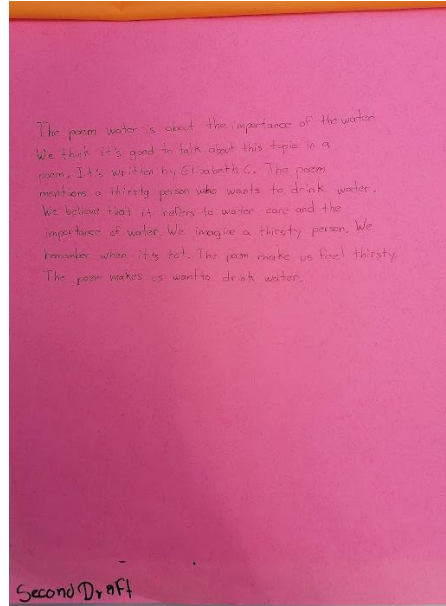 The poem water is about the importance of the water
We think it's good to talk about this topic in a
poem. It's written by Elisabeth C. The poem
mentions a thirsty person who wants to drink water.
We believe that it refers to water care and the
importance of water. We imagine a thirsty person. We
remember when it's hot. The poem make us feel thirsty.
The poem makes us want to drink water.
Second Draft